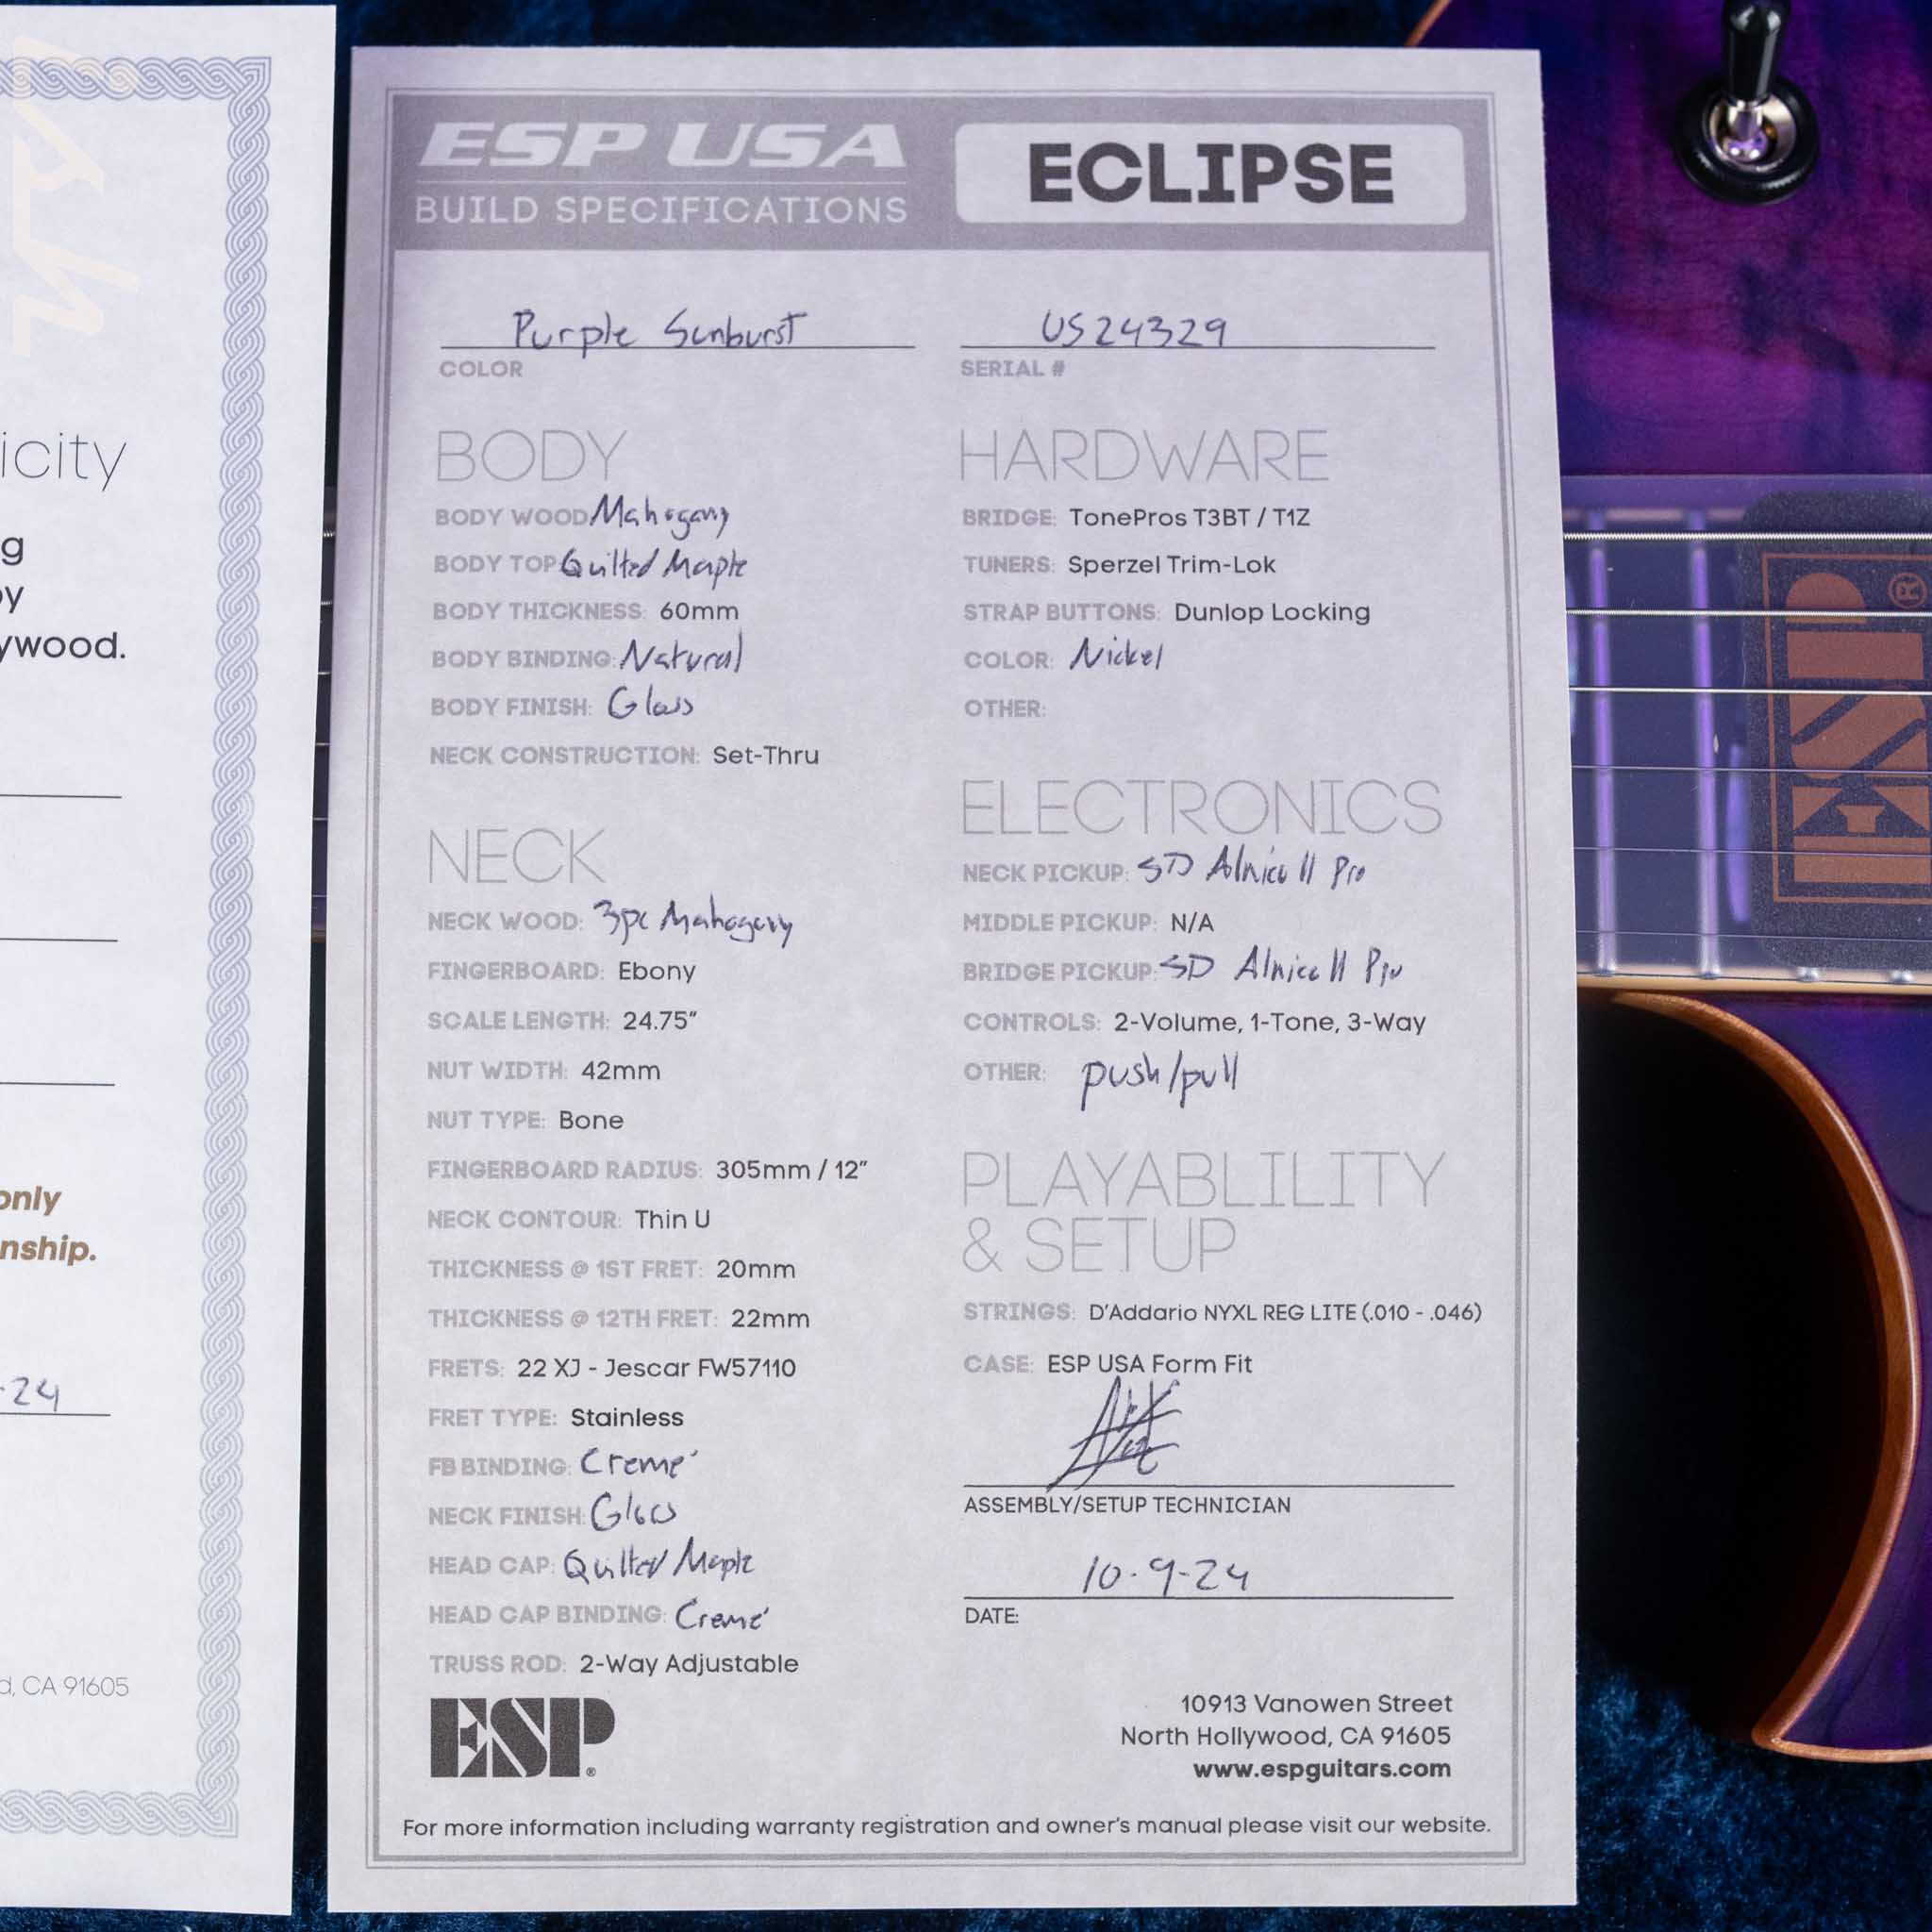 icity
g
by
ywood.
only
nship.
-24
d, CA 91605
ESP USA
BUILD SPECIFICATIONS
ECLIPSE
Purple Sunburst
COLOR
US24329
SERIAL #
BODY
BODY WOOD: Mahogany
BODY TOP: Quilted Maple
BODY THICKNESS: 60mm
BODY BINDING: Natural
BODY FINISH: Gloss
NECK CONSTRUCTION: Set-Thru
NECK
NECK WOOD: 3pc Mahogany
FINGERBOARD: Ebony
SCALE LENGTH: 24.75"
NUT WIDTH: 42mm
NUT TYPE: Bone
FINGERBOARD RADIUS: 305mm / 12"
NECK CONTOUR: Thin U
THICKNESS @ 1ST FRET: 20mm
THICKNESS @ 12TH FRET: 22mm
FRETS: 22 XJ - Jescar FW57110
FRET TYPE: Stainless
FB BINDING: Cremé
NECK FINISH: Gloss
HEAD CAP: Quilted Maple
HEAD CAP BINDING: Cremé
TRUSS ROD: 2-Way Adjustable
ESP®
HARDWARE
BRIDGE: TonePros T3BT / T1Z
TUNERS: Sperzel Trim-Lok
STRAP BUTTONS: Dunlop Locking
COLOR: Nickel
OTHER:
ELECTRONICS
NECK PICKUP: SD Alnico II Pro
MIDDLE PICKUP: N/A
BRIDGE PICKUP: SD Alnico II Pro
CONTROLS: 2-Volume, 1-Tone, 3-Way
OTHER: push/pull
PLAYABLILITY
& SETUP
STRINGS: D'Addario NYXL REG LITE (.010 - .046)
CASE: ESP USA Form Fit
ASSEMBLY/SETUP TECHNICIAN
10-9-24
DATE:
10913 Vanowen Street
North Hollywood, CA 91605
www.espguitars.com
For more information including warranty registration and owner's manual please visit our website.
ESP®